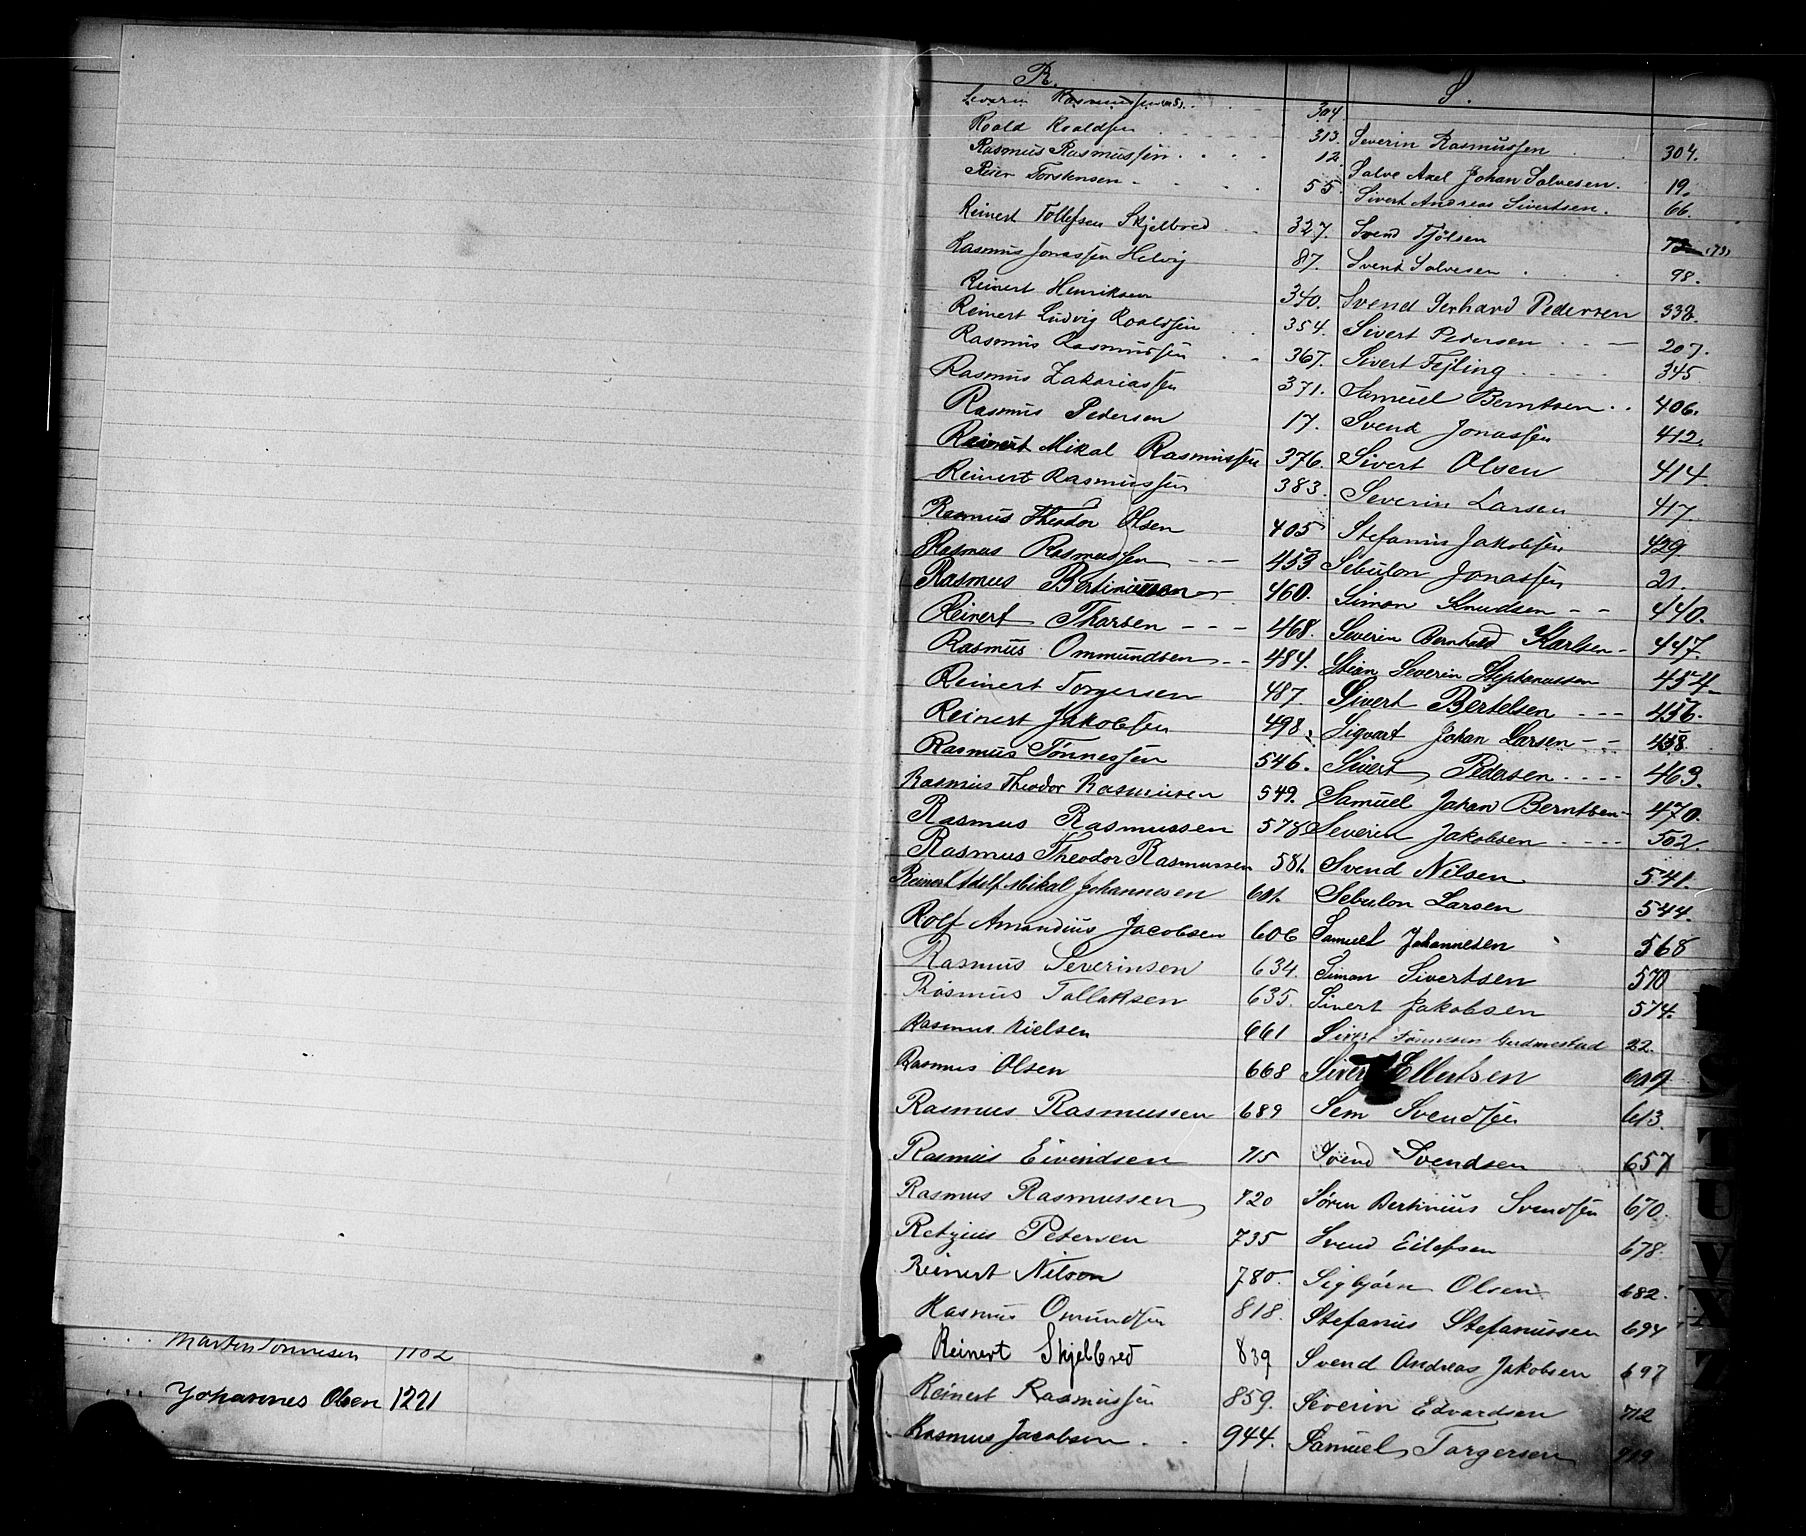 R.
Severin Rasmussen 304.
Roald Roaldsen 313.
Rasmus Rasmussen 12.
Reier Torstensen 55.
Reinert Tollefsen Skjelbred 327.
Rasmus Jonassen Helvig 87.
Reinert Henriksen 340.
Reinert Ludvig Roaldsen 354.
Rasmus Rasmussen 367.
Rasmus Zakariassen 371.
Rasmus Pedersen 17.
Reinert Mikal Rasmussen 376.
Reinert Rasmussen 383.
Rasmus Theodor Olsen 405
Rasmus Rasmussen 453
Rasmus Bertiniussen 460.
Reinert Tharsen 468.
Rasmus Ommundsen 484.
Reinert Torgersen 487.
Reinert Jakobsen 498.
Rasmus Tønnessen 546.
Rasmus Theodor Rasmussen 549.
Rasmus Rasmussen 578
Rasmus Theodor Rasmussen 581.
Reinert Adolf Mikal Johannesen 601.
Rolf Amandius Jacobsen 606
Rasmus Severinsen 634.
Rasmus Tallaksen 635.
Rasmus Nielsen 661
Rasmus Olsen 668
Rasmus Rasmussen 689
Rasmus Eivindsen 715
Rasmus Rasmussen 720
Retzius Petersen 735
Reinert Nilson 780.
Rasmus Omundsen 818.
Reinert Skjelbred 839
Reinert Rasmussen 859.
Rasmus Jacobsen 944.
S.
Severin Rasmussen 304.
Salve Axel Johan Salvesen. 19.
Sivert Andreas Sivertsen. 66.
Svend Tjølsen (73)
Svend Salvesen 98.
Svend Gerhard Pedersen 338.
Sivert Pedersen 207.
Sivert Fejling 345
Samuel Berntsen 406.
Svend Jonassen 412.
Sivert Olsen 414.
Severin Larsen 417.
Stefanus Jakobsen 429
Sebulon Jonassen 21.
Simon Knudsen 440.
Severin Bernhard Karlsen 447.
Stian Severin Stephanussen 454
Sivert Bertelsen 456.
Sigvart Johan Larsen 458
Sivert Pedersen 463.
Samuel Johan Berntsen 470.
Severin Jakobsen 502.
Svend Nilsen 541.
Sebulon Larsen 544.
Samuel Johannesen 568
Simon Sivertsen 570
Sivert Jakobsen 574.
Sivert Tønnesen Gudmestad 22.
Sivert Ellertsen 609
Sem Svendsen 613.
Svend Svendsen 657
Søren Bertinius Svendsen 670.
Svend Eilefsen 678.
Sigbjørn Olsen 682.
Stefanus Stefanussen 694
Svend Andreas Jakobsen 697
Severin Edvardsen 712
Samuel Torgersen 719
Martin Tønnesen 1102
Johannes Olsen 1221
S
T
U
V
X
Z